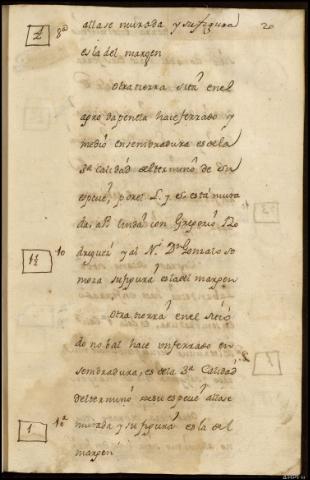 allase murada y su figura 20
½ 8ª es la del margen
Otra tierra Sita en el
agro da peneta hace ferrado y
medio en sembradura es de la
3ª Calidad del termino de su
espeue, por el L. y S. está mura
da, al P. linda con Gregorio Ro
driguez y al N. Dn Gonzalo so
1½ 10 moza su figura es la del margen
Otra tierra en el sitio
do nobal hace un ferrado en
sembradura, es de la 3ª Calidad
del termino de su espeue allase
1 10ª murada y su figura es la del
margen